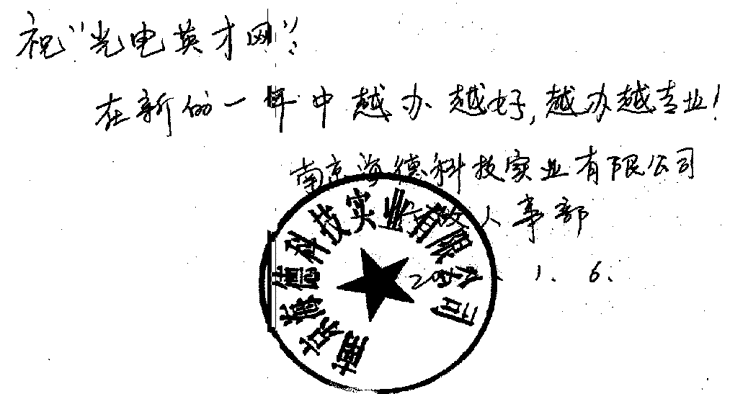 祝"光电英才网":
在新的一年中越办越好,越办越专业!
南京海德科技实业有限公司
人事部
1.6.
南京海德科技实业有限公司